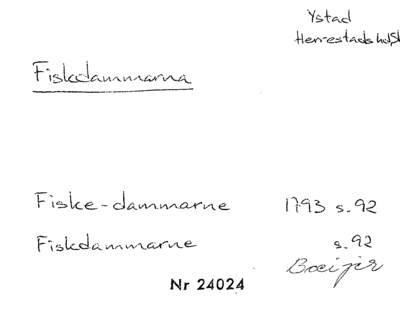 Ystad
Herrestads hd, Sk
Fiskdammarna
Fiske-dammarne 1793 s. 92
Fiskdammarne s. 92
Boeijer
Nr 24024